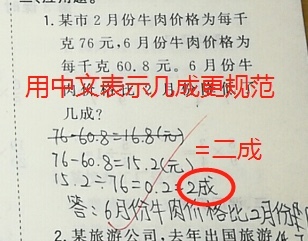 1.某市2月份牛肉价格为每千
克76元,6月份牛肉价格为每
千克60.8元。6月份牛
用中文表示几成更规范
几成?
76-60.8=16.8(元)
76-60.8=15.2(元)
=二成
15.2÷76=0.2=2成
答:6月份牛肉价格比2月份
2.某旅游公司,去年出国旅游